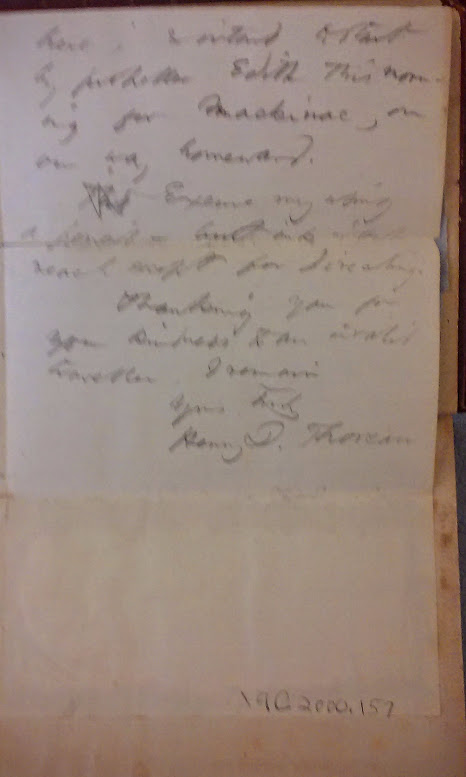 here, & intend to start
by propeller Edith this morn-
ing for Mackinac, on
our way homeward.
Excuse my using
a pencil – ink
reach except for
Thanking you for
your kindness to an invalid
traveller I remain
Yrs Truly
Henry D. Thoreau
2000.157